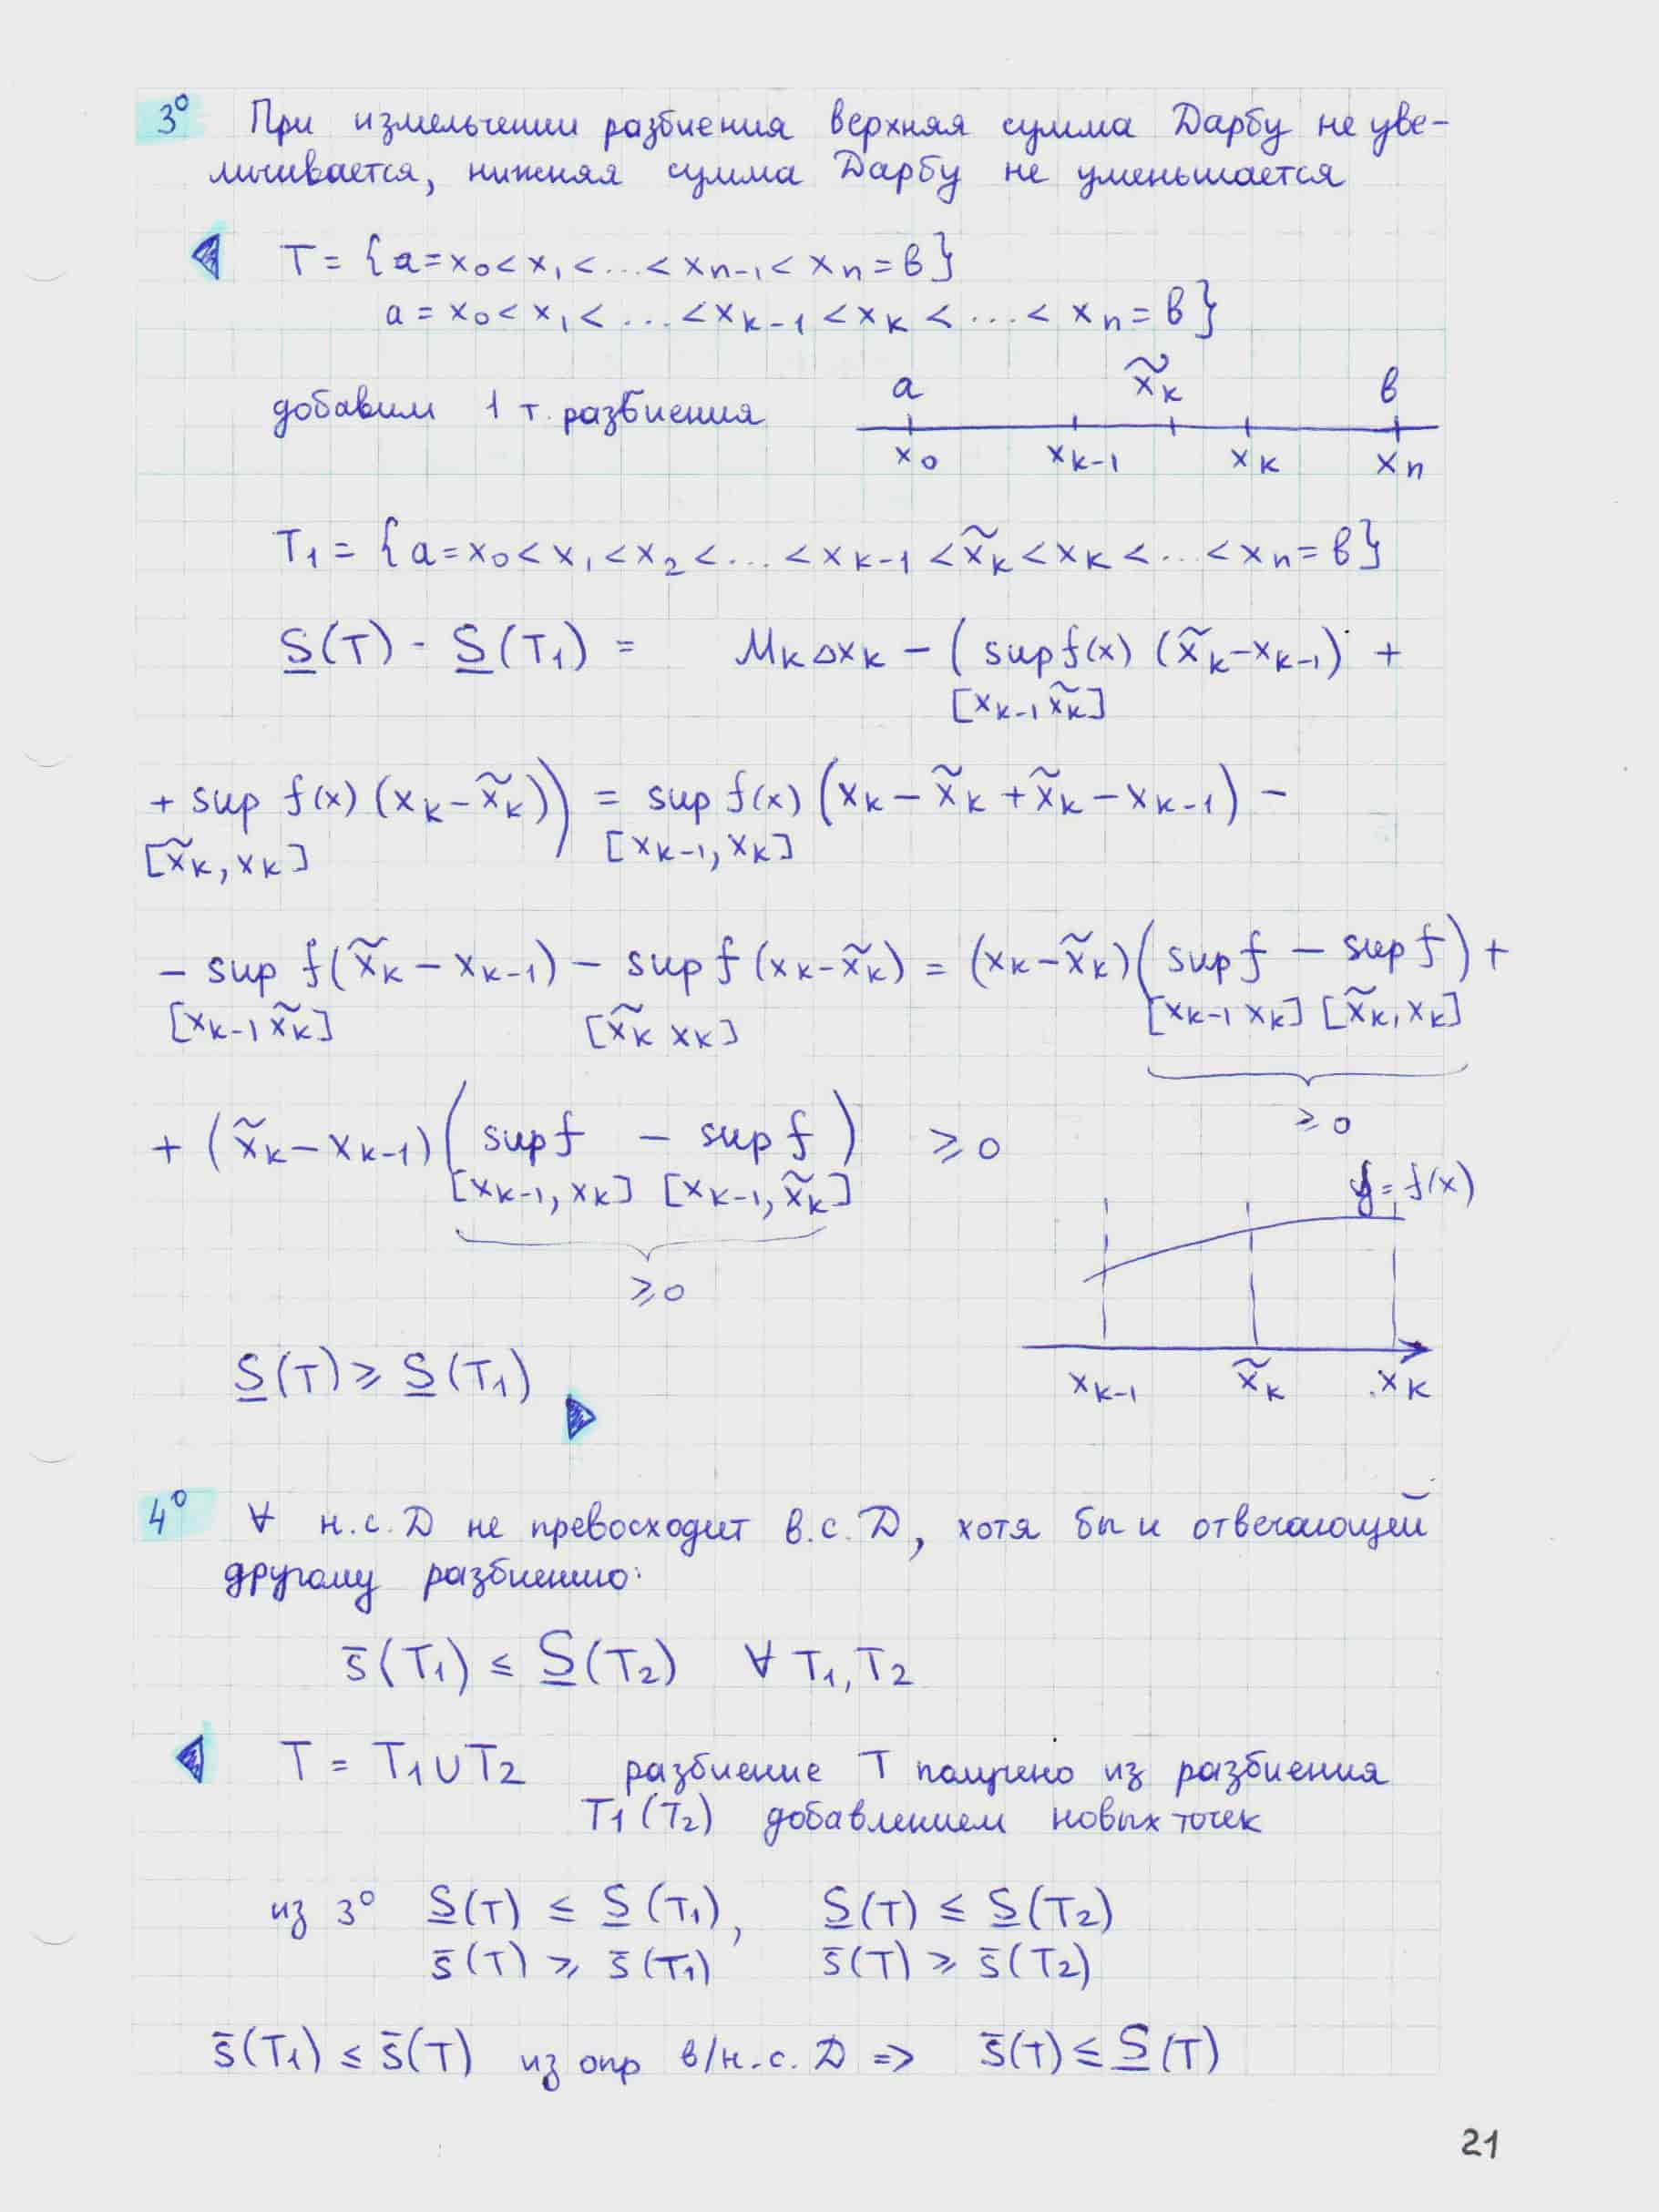 3° При измельчении разбиения верхняя сумма Дарбу не уве-
личивается, нижняя сумма Дарбу не уменьшается
T = {a = x₀ < x₁ < ... < xₙ₋₁ < xₙ = b}
a = x₀ < x₁ < ... < xₖ₋₁ < xₖ < ... < xₙ = b}
добавим 1 т. разбиения
a x̃ₖ b
x₀ xₖ₋₁ xₖ xₙ
T₁ = {a = x₀ < x₁ < x₂ < ... < xₖ₋₁ < x̃ₖ < xₖ < ... < xₙ = b}
S̲(T) - S̲(T₁) = Mₖ Δxₖ − (sup f(x) (x̃ₖ − xₖ₋₁) +
[xₖ₋₁ x̃ₖ]
+ sup f(x) (xₖ − x̃ₖ)) = sup f(x) (xₖ − x̃ₖ + x̃ₖ − xₖ₋₁) −
[x̃ₖ, xₖ] [xₖ₋₁, xₖ]
− sup f(x̃ₖ − xₖ₋₁) − sup f (xₖ − x̃ₖ) = (xₖ − x̃ₖ)(sup f − sup f) +
[xₖ₋₁ x̃ₖ] [x̃ₖ xₖ] [xₖ₋₁ xₖ] [x̃ₖ, xₖ]
≥ 0
+ (x̃ₖ − xₖ₋₁)(sup f − sup f) ≥ 0
[xₖ₋₁, xₖ] [xₖ₋₁, x̃ₖ]
≥ 0
y = f(x)
xₖ₋₁ x̃ₖ xₖ
S̲(T) ≥ S̲(T₁)
4° ∀ н.с.Д не превосходит в.с.Д, хотя бы и отвечающей
другому разбиению:
s̄(T₁) ≤ S̲(T₂) ∀ T₁, T₂
T = T₁ ∪ T₂ разбиение T получено из разбиения
T₁ (T₂) добавлением новых точек
из 3° S̲(T) ≤ S̲(T₁), S̲(T) ≤ S̲(T₂)
s̄(T) ≥ s̄(T₁) s̄(T) ≥ s̄(T₂)
s̄(T₁) ≤ s̄(T) из опр в/н.с.Д => s̄(T) ≤ S̲(T)
21